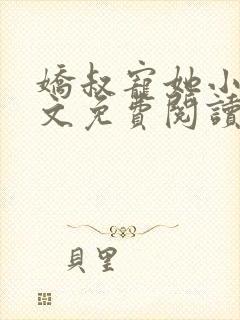 嬌叔寵她小
文免費閱讀
貝里